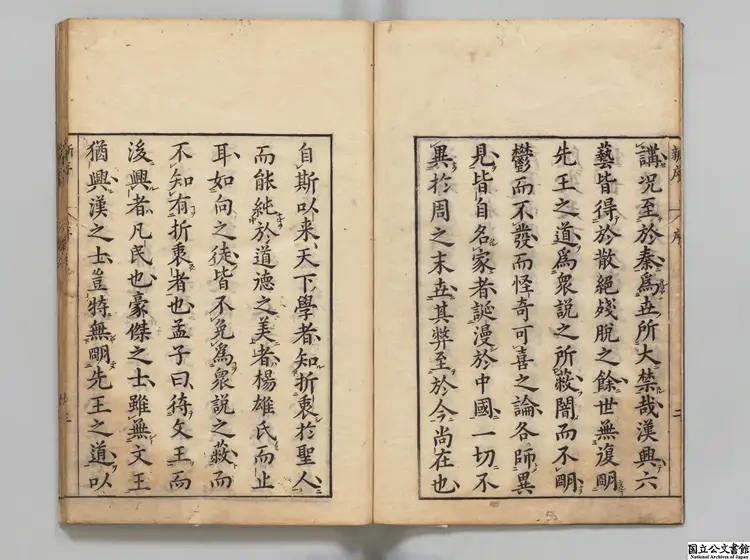 新序
序
二
講况至於秦爲世所大禁哉漢興六
藝皆得於散絕殘脫之餘世無復明
先王之道爲衆說之所蔽闇而不明
鬱而不發而怪奇可喜之論各師異
見皆自名家者誕漫於中國一切不
異於周之末世其弊至於今尚在也
自斯以来天下學者知折衷於聖人
而能純於道德之美者楊雄氏而止
耳如向之徒皆不免爲衆說之蔽而
不知有折衷者也孟子曰待文王而
後興者凡民也豪傑之士雖無文王
猶興漢之士豈特無明先王之道以
国立公文書館
National Archives of Japan